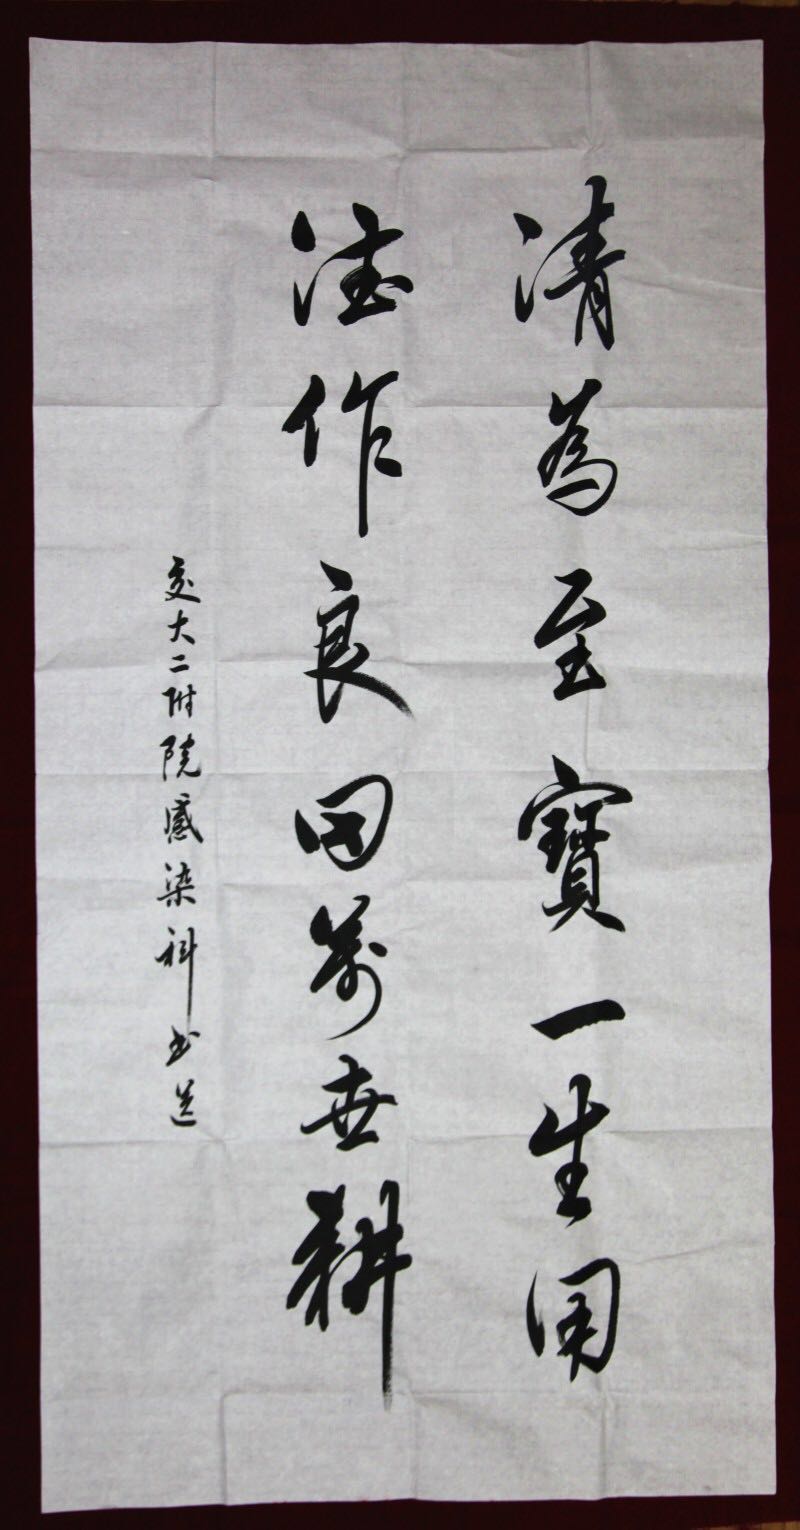 清為至寶一生用
德作良田萬世耕
交大二附院感染科书送